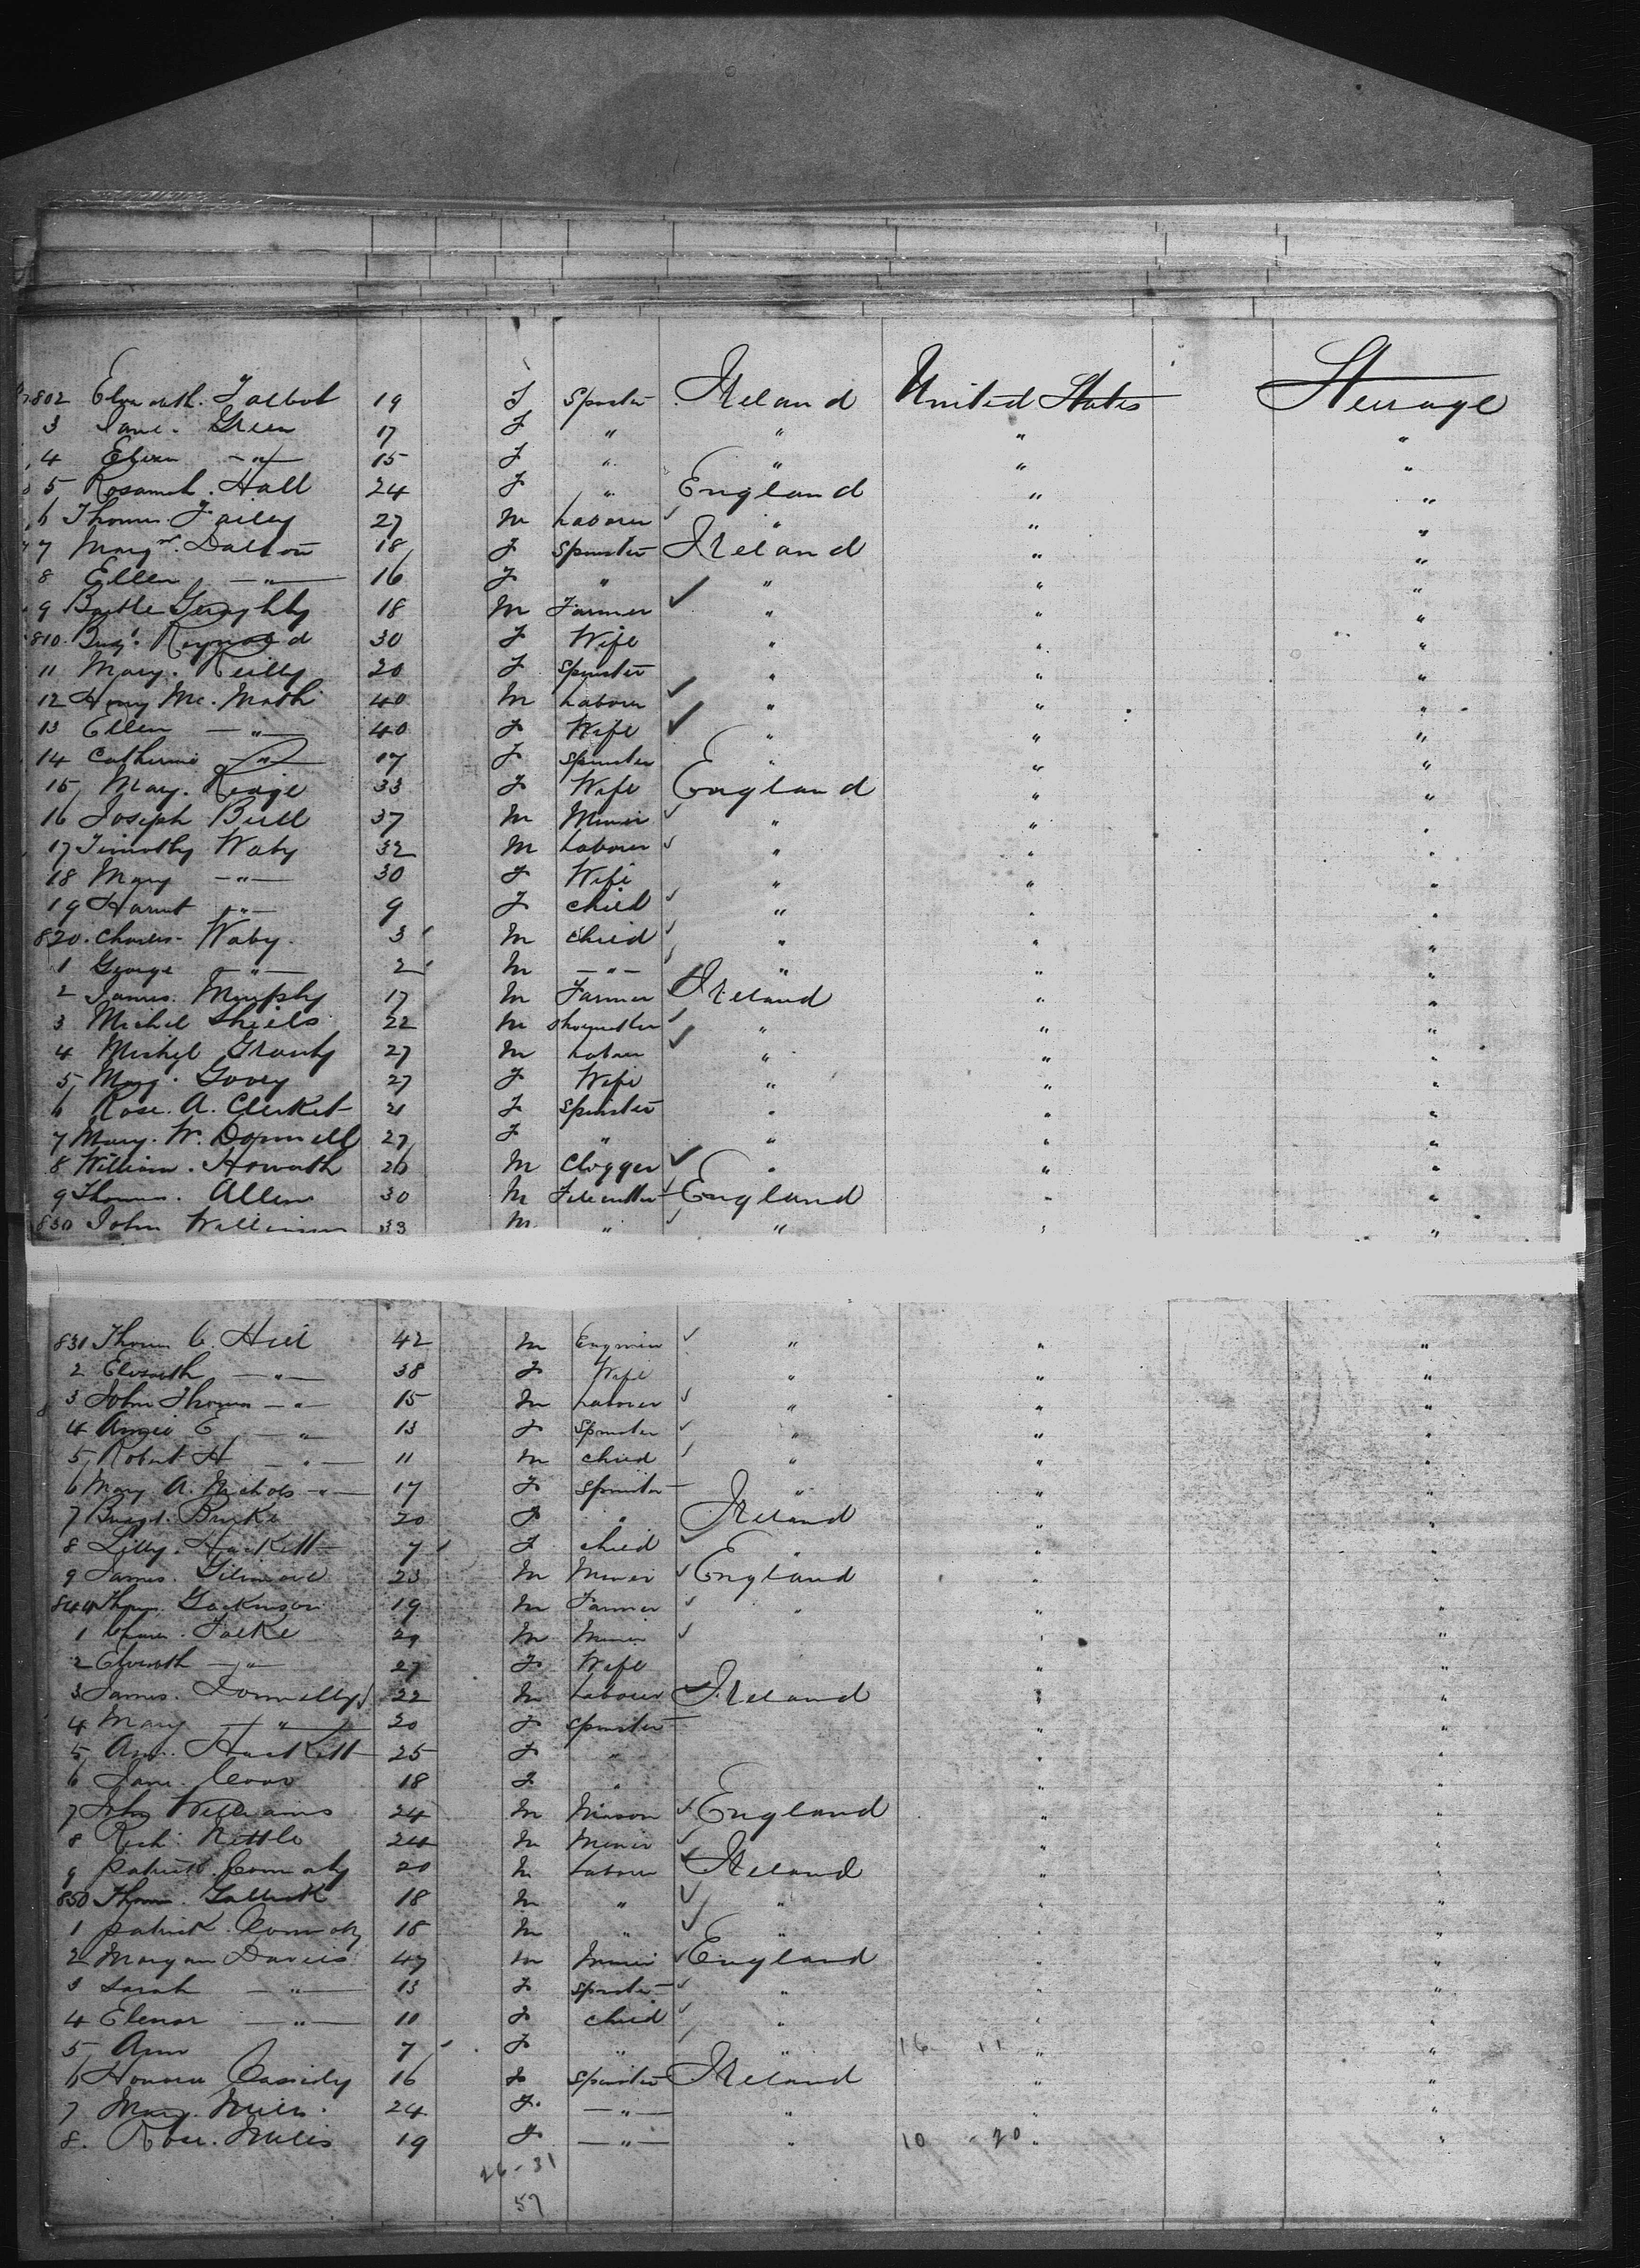 802 Elizabeth. Talbot 19 F Spinster Ireland United States Steerage
3 Jane. Green 17 F " " " "
4 Eliza — " — 15 F " " " "
5 Rosannah. Hall 24 F " England " "
6 Thomas. Failey 27 M Laborer ✓ " " "
7 Margt. Dalton 18 F Spinster Ireland " "
8 Ellen — " — 16 F " " " "
9 Bartle Geraghty 18 M Farmer ✓ " " "
810. Bridt. Reynold 30 F Wife " " "
11 Mary. Reilly 20 F Spinster " " "
12 Henry Mc. Math 40 M Laborer ✓ " " "
13 Ellen — " — 40 F Wife ✓ " " "
14 Catherine — " — 17 F Spinster " " "
15 Mary. 33 F Wife England " "
16 Joseph Bull 37 M Miner ✓ " " "
17 Timothy Waby 32 M Laborer ✓ " " "
18 Mary — " — 30 F Wife " " "
19 Harriet — " — 9 F Child ✓ " " "
820. Charles. Waby. 3 M Child ✓ " " "
1 George — " — 2 M — " — ✓ " " "
2 James. Murphy 17 M Farmer ✓ Ireland " "
3 Michel Shiels 22 M Shoemaker ✓ " " "
4 27 M Laborer ✓ " " "
5 Mary. 27 F Wife " " "
6 Rose. A. 21 F Spinster " " "
7 Mary. W. Donnell 27 F " " " "
8 William. Howarth 26 M Clogger ✓ " " "
9 Thomas. Allen 30 M File cutter ✓ England " "
830 John Wilkinson 33 M. " ✓ " " "
831 Thomas C. Hill 42 M ✓ " " "
2 Elizabeth — " — 38 F Wife " " "
3 John Thomas — " — 15 M Laborer ✓ " " "
4 Annie E — " — 13 F Spinster ✓ " " "
5 Robert H — " — 11 M Child ✓ " " "
6 Mary A. Nichols — " — 17 F Spinster " " "
7 Bridgt. Burke 20 F " Ireland " "
8 Lilly. Hackett 7 F Child ✓ " " "
9 James. 23 M Miner ✓ England " "
840 Thos. 19 M Farmer ✓ " " "
1 29 M Miner ✓ " "
2 Elizabeth — " — 27 F Wife " "
3 James. Donnelly 22 M Laborer ✓ Ireland " "
4 Mary — " — 20 F Spinster " "
5 Ann. Hackett 25 F " " "
6 Jane. 18 F " " "
7 John Williams 24 M Mason ✓ England " "
8 Rich. Nettle 24 M Miner ✓ " "
9 Patrick. Connolly 20 M Laborer ✓ Ireland " "
850 Thomas. 18 M " ✓ " " "
1 Patrick. Connolly 18 M " ✓ " " "
2 Morgan Davies 47 M Miner ✓ England " "
3 Sarah — " — 13 F Spinster ✓ " " "
4 Elenor — " — 10 F Child ✓ " " "
5 Ann 7 F " ✓ " 16 11 " "
6 Honora Cassidy 16 F Spinster Ireland " "
7 Mary. Miles. 24 F. — " — " " "
8. Rose. Miles 19 F — " — " 10 - 20 " "
26 - 31
57